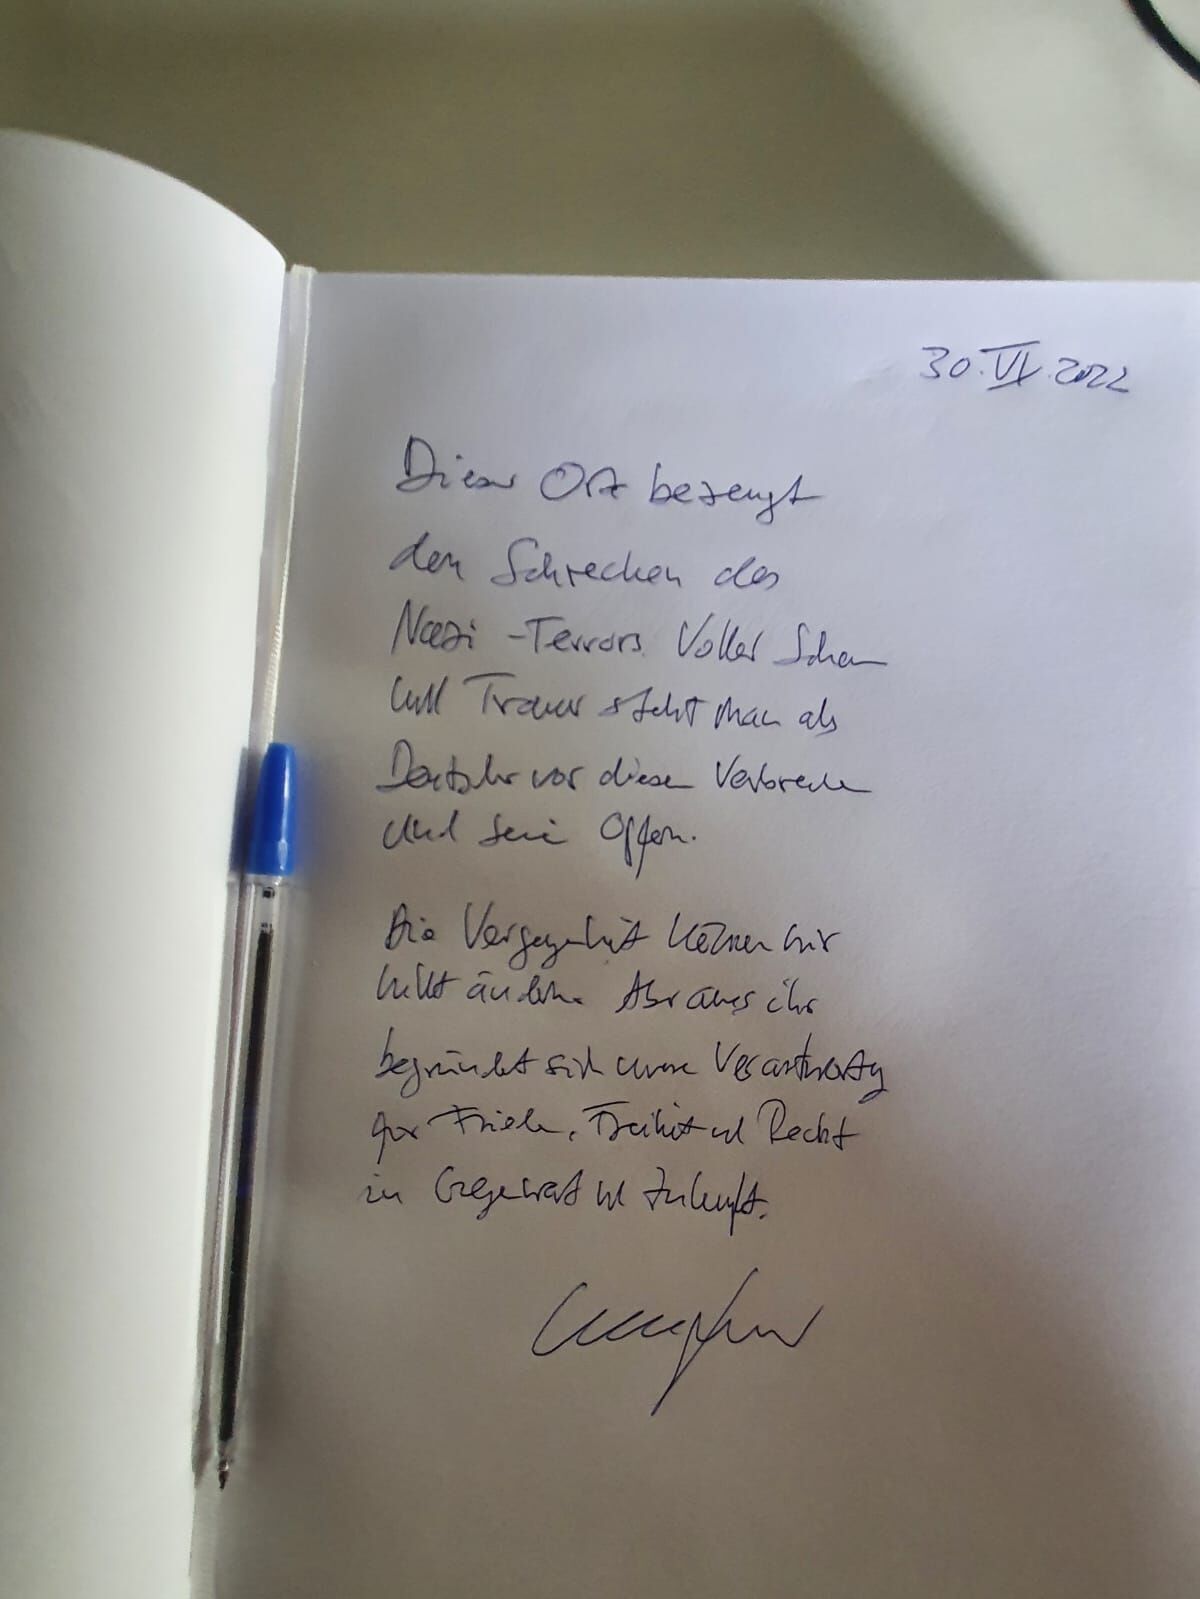 30.VI.2022
Dieser Ort bezeugt
den Schrecken des
Nazi-Terrors. Voller Scham
und Trauer steht man als
Deutscher vor diesen Verbrechen
und seinen Opfern.
Die Vergangenheit können wir
nicht ändern. Aber aus ihr
begründet sich unsere Verantwortung
für Frieden, Freiheit und Recht
in Gegenwart und Zukunft.